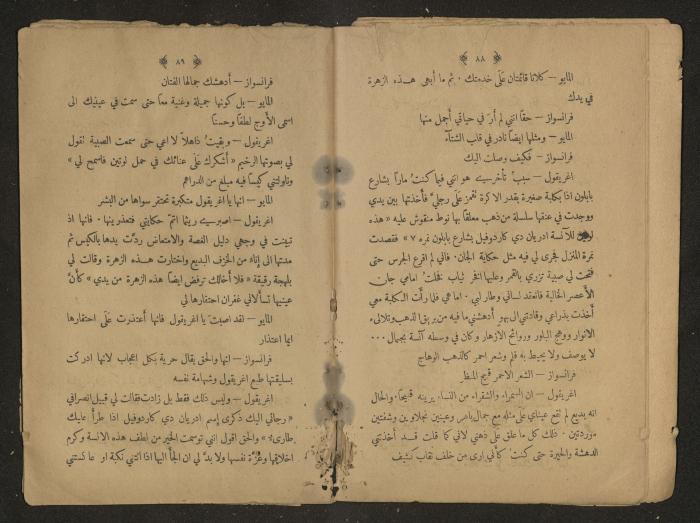 ٨٨
المايو — كلانا قائمتان عَلَى خدمتك . ثم ما أبهى هذه الزهرة
في يدك
فرانسواز — حقًا انني لم أرَ في حياتي أجمل منها
المايو — ومثلها ايضًا نادر في قلب الشتآء
فرانسواز — فكيف وصلت اليك
اغريقول — سببُ تأخري هو انني فيما كنتُ مارًا بشارع
بابلون اذا بكلبة صغيرة بقدر الاكرة تقفز عَلَى رجليَّ فأخذتها بين يدي
ووجدت في عنقها سلسلة من ذهب معلقًا بها نوط منقوش عليه « هذه
للآنسة ادريان دي كاردوفيل بشارع بابلون نمرة ٧ » فقصدت
نمرة المنزل فجرى لي فيه مثل حكاية الجان . فاني لم اقرع الجرس حتى
فتحت لي صبية تزري بالقمر وعليها افخر ثياب فخلتُ امامي جان
الأعصر الخالية فانعقد لساني وطار لبي . اما هي فلما رأت الكلبة معي
أخذت بذراعي وقادتني الى بهو أدهشني ما فيه من بريق الذهب وتلالىء
الانوار ووهج البلور وروائح الازهار وكان في وسطه آنسة بجمال ...
لا يوصف ولا يحيط به قلم وشعر احمر كالذهب الوهاج
فرانسواز — الشعر الاحمر قبيح المنظر
اغريقول — ان السمراء والشقراء من النساء يرينه قبيحًا والحال
انه بديع لم تقع عيناي عَلَى مثله مع جمال باهر وعينين نجلاوين وشفتين
ورديتين . ذلك كل ما علق عَلَى ذهني لاني كما قلت قد أخذتني
الدهشة والحيرة حتى كنت كأني ارى من خلف نقاب كثيف
٨٩
فرانسواز — أدهشك جمالها الفتان
المايو — بل كونها جميلة وغنية معًا حتى سمت في عينيك الى
اسمى الأوج لطفًا وحسنًا
اغريقول — وبقيتُ ذاهلًا لا اعي حتى سمعت الصبية تقول
لي بصوتها الرخيم « أشكرك عَلَى عنائك في حمل لوتين فاسمح لي »
وناولتني كيسًا فيه مبلغ من الدراهم
المايو — انها يا اغريقول متكبرة تحتقر سواها من البشر
اغريقول — اصبري ريثما اتم حكايتي فتعذرينها . فانها اذ
تبينت في وجهي دليل الغصة والامتعاض ردَّت يدها بالكيس ثم
مدتها الى إناء من الخزف البديع واختارت هذه الزهرة وقالت لي
بلهجة رقيقة « فلا أخالك ترفض ايضًا هذه الزهرة من يدي » كأنَّ
عينيها تسألاني غفران احتقارها لي
المايو — لقد اصبت يا اغريقول فانها أعتذرت عَلَى احتقارها
ايما اعتذار
فرانسواز — انها والحق يقال حرية بكل اعجاب لانها ادركت
بسليقتها طبع اغريقول وشهامة نفسه
اغريقول — وليس ذلك فقط بل زادت فقالت لي قبيل انصرافي
« رجائي اليك ذكرى إسم ادريان دي كاردوفيل اذا طرأ عليك
طارىء » والحق اقول انني توسمت الخير من لطف هذه الانسة وكرم
اخلاقها وعزَّة نفسها ولا بدَّ لي ان الجأ اليها اذا اتتني نكبة او عاكستني